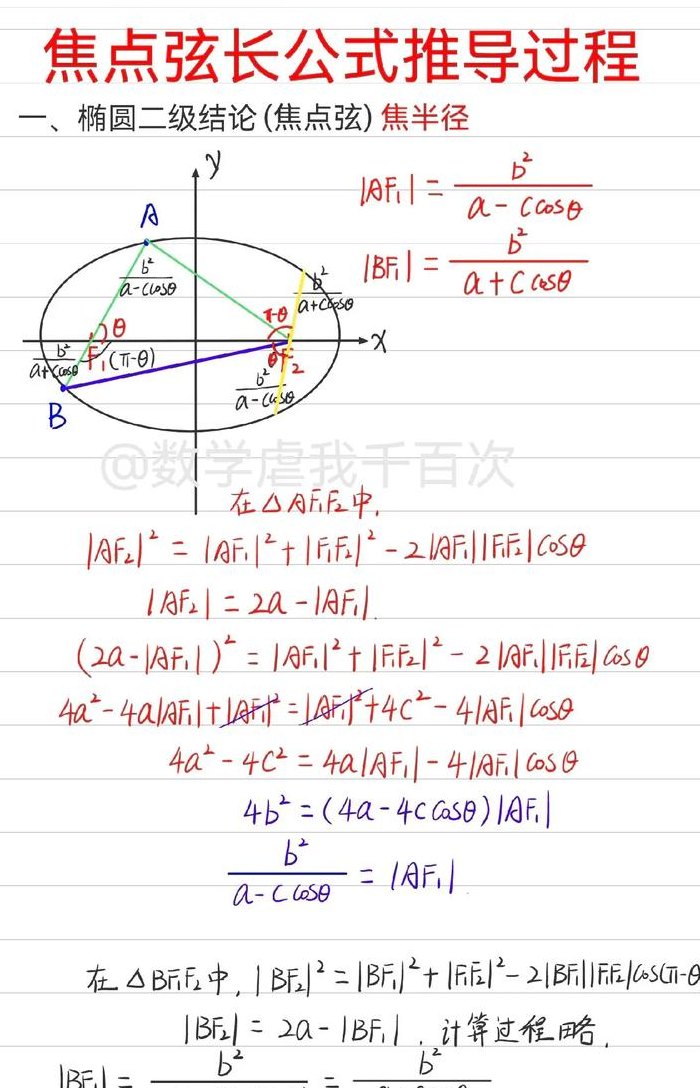 焦点弦长公式推导过程
一、椭圆二级结论(焦点弦) 焦半径
y
|AF₁| = b²/(a - c cosθ)
A
|BF₁| = b²/(a + c cosθ)
b²/(a - c cosθ)
b²/(a + c cosθ)
π-θ
θ
x
b²/(a + c cosθ)
F₁ (π-θ)
θ F₂
b²/(a - c cosθ)
B
@数学虐我千百次
在△AF₁F₂中,
|AF₂|² = |AF₁|² + |F₁F₂|² - 2|AF₁||F₁F₂|cosθ
|AF₂| = 2a - |AF₁|.
(2a - |AF₁|)² = |AF₁|² + |F₁F₂|² - 2|AF₁||F₁F₂|cosθ
4a² - 4a|AF₁| + |AF₁|² = |AF₁|² + 4c² - 4|AF₁|cosθ
4a² - 4c² = 4a|AF₁| - 4|AF₁|cosθ
4b² = (4a - 4c cosθ)|AF₁|
b²/(a - c cosθ) = |AF₁|.
在△BF₁F₂中, |BF₂|² = |BF₁|² + |F₁F₂|² - 2|BF₁||F₁F₂|cos(π-θ
|BF₂| = 2a - |BF₁|. 计算过程略.
|BF₁| = b² = b²